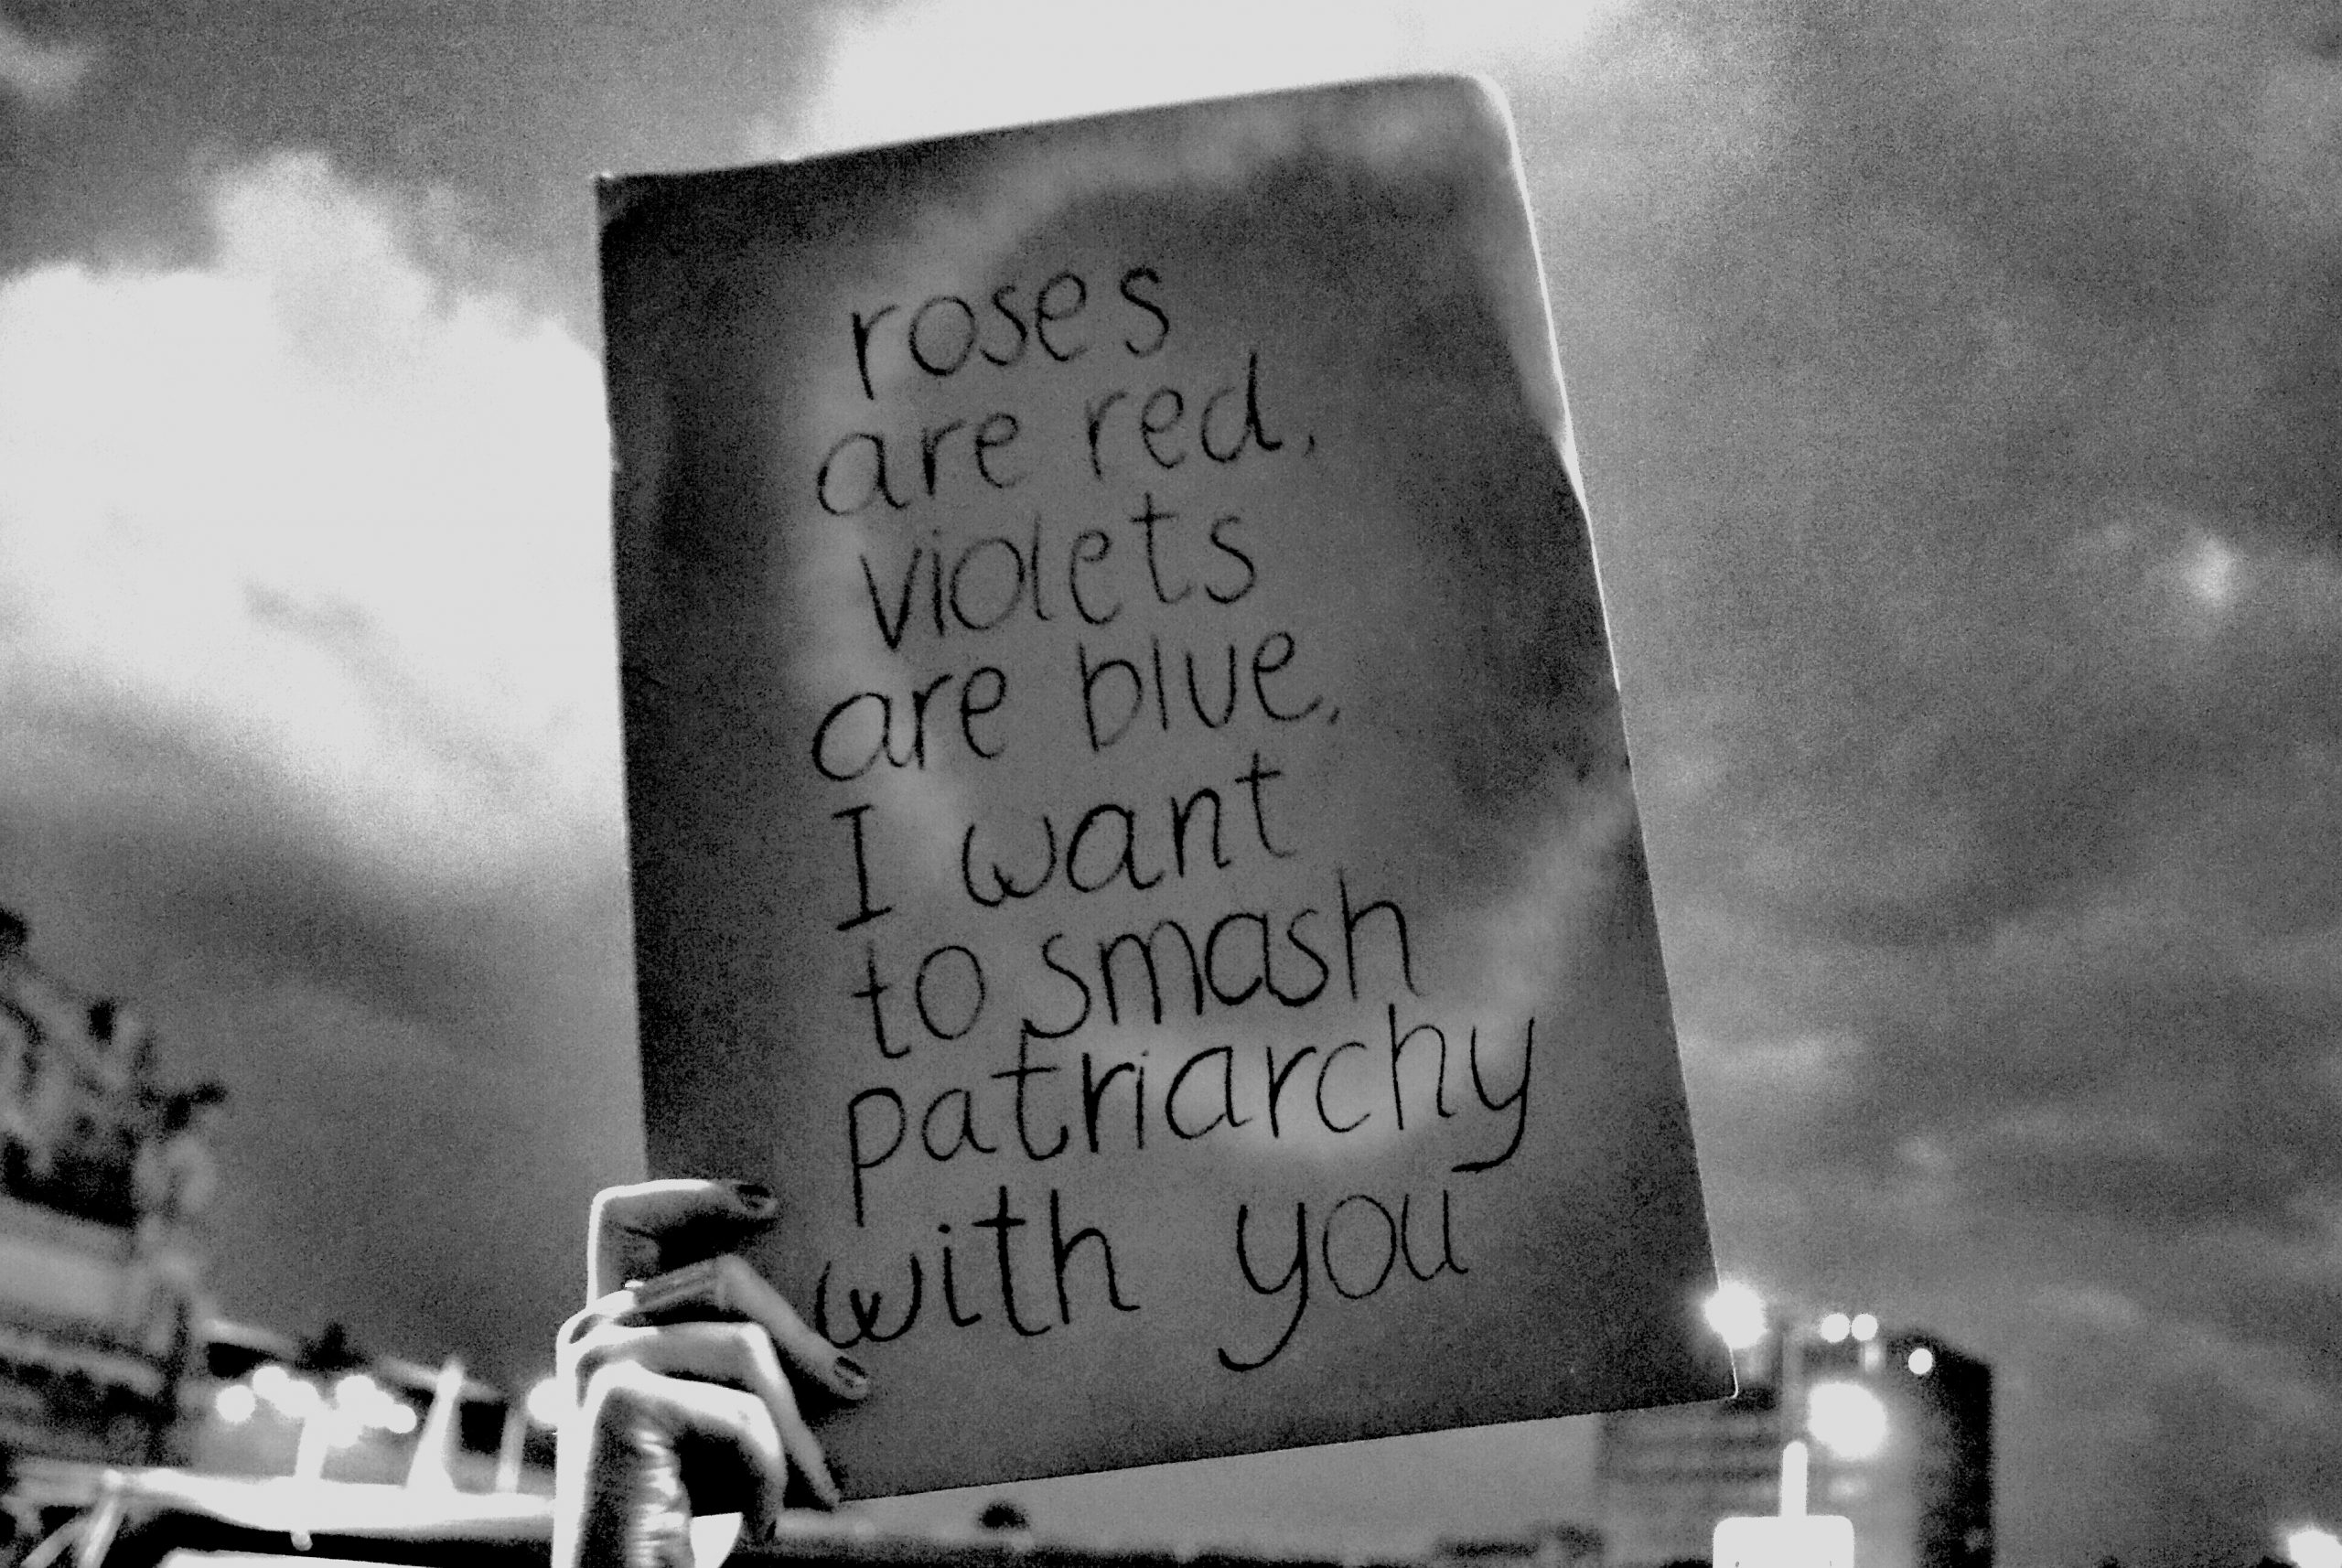 roses
are red,
violets
are blue,
I want
to smash
patriarchy
with you